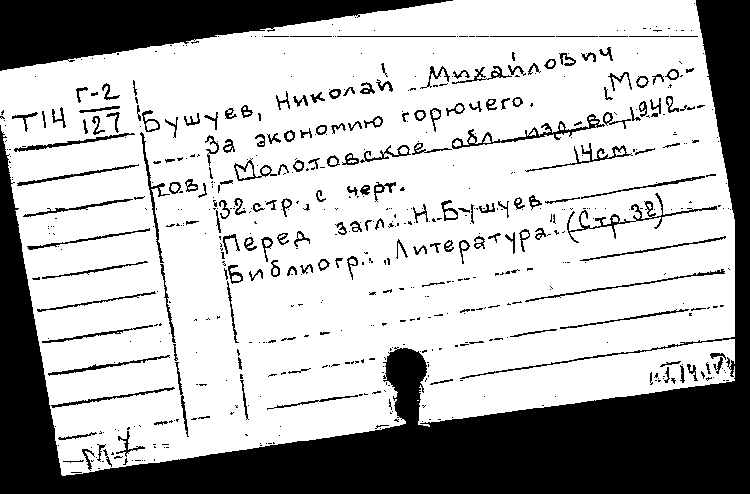 Г-2
Т14 127
Бушуев, Николай Михайлович
За экономию горючего. Моло-
тов, Молотовское обл. изд-во, 1942
32 стр., с черт. 14 см.
Перед загл.: Н. Бушуев
Библиогр.: „Литература“ (Стр. 32)